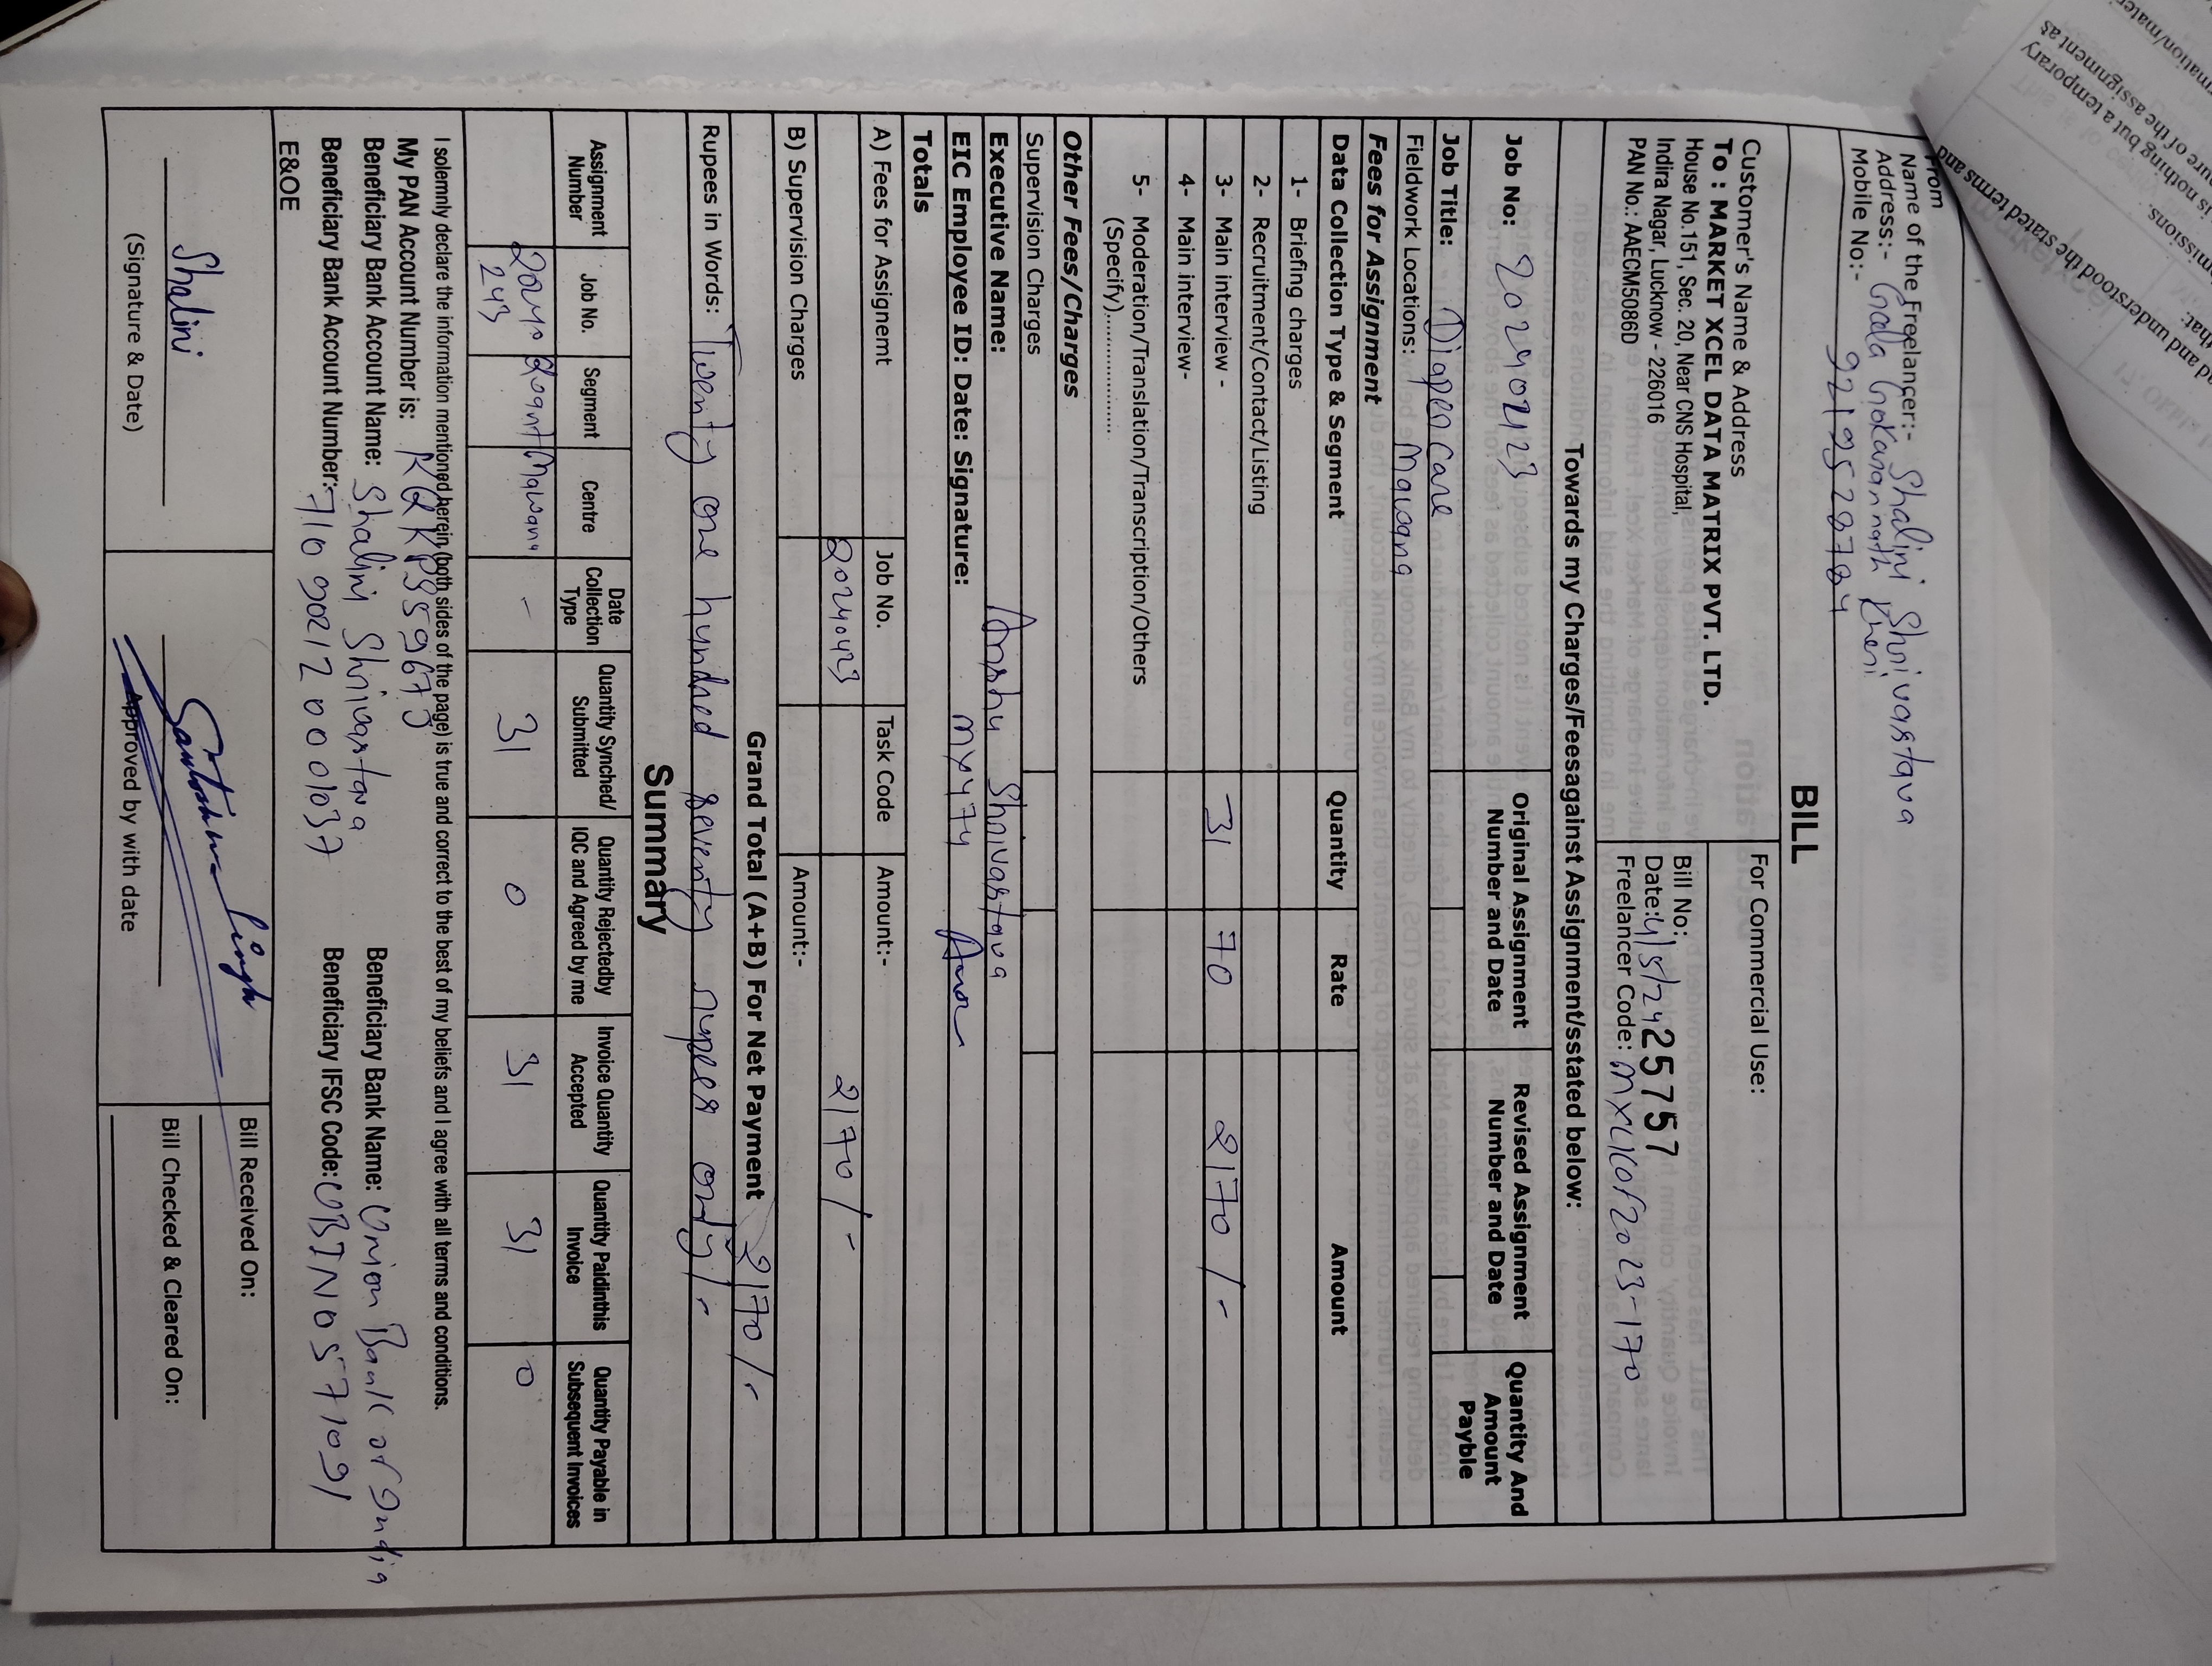 From
Name of the Freelancer:- Shalini Shrivastava
Address:- Gola Gokarannath Kheri
Mobile No:-
BILL
Customer's Name & Address
To : MARKET XCEL DATA MATRIX PVT. LTD.
House No.151, Sec. 20, Near CNS Hospital,
Indira Nagar, Lucknow - 226016
PAN No.: AAECM5086D
For Commercial Use:
Bill No: 25757
Date: 4/5/24
Freelancer Code:
Towards my Charges/Feesagainst Assignment/sstated below:
Job No:
Original Assignment Number and Date
Revised Assignment Number and Date
Quantity And Amount Payble
Job Title: Diaper care
Fieldwork Locations: Mawana
Fees for Assignment
Data Collection Type & Segment Quantity Rate Amount
1- Briefing charges
2- Recruitment/Contact/Listing
3- Main interview - 31 70 2170/-
4- Main interview-
5- Moderation/Translation/Transcription/Others
(Specify)................
Other Fees/Charges
Supervision Charges
Executive Name: Anshu Shrivastava
EIC Employee ID: Date: Signature: MX474
Totals
A) Fees for Assignemt Job No. Task Code Amount:-
2170/-
B) Supervision Charges Amount:-
Grand Total (A+B) For Net Payment 2170/-
Rupees in Words: Twenty one hundred seventy rupees only/-
Summary
Assignment Number
Job No.
Segment
Centre
Date Collection Type
Quantity Synched/ Submitted
Quantity Rejectedby IQC and Agreed by me
Invoice Quantity Accepted
Quantity Paidinthis Invoice
Quantity Payable in Subsequent Invoices
Mawana - 31 0 31 31 0
I solemnly declare the information mentioned herein (both sides of the page) is true and correct to the best of my beliefs and I agree with all terms and conditions.
My PAN Account Number is:
Beneficiary Bank Account Name: Shalini Shrivastava Beneficiary Bank Name: Union Bank of India
Beneficiary Bank Account Number: Beneficiary IFSC Code: UBIN0571091
E&OE
Shalini
(Signature & Date)
Santosh Singh
Approved by with date
Bill Received On:
Bill Checked & Cleared On: